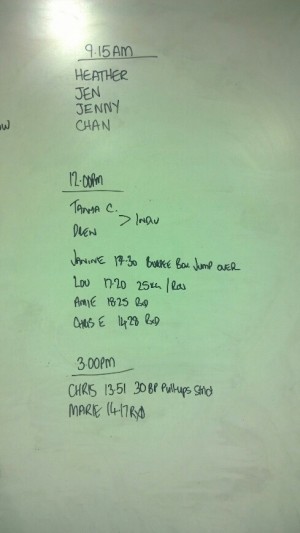 9.15AM
HEATHER
JEN
JENNY
CHAN
12.00PM
TANIA C.
> INDIV
DREW
JANINE 17:30 BURPEE BOX JUMP OVER
LOU 17:20 25KG / ROW
AMIE 18:25 RXD
CHRIS E 14:28 RXD
3:00PM
CHRIS 13:51 30 BP Pull-ups Strict
MARIE 14:17 RXD